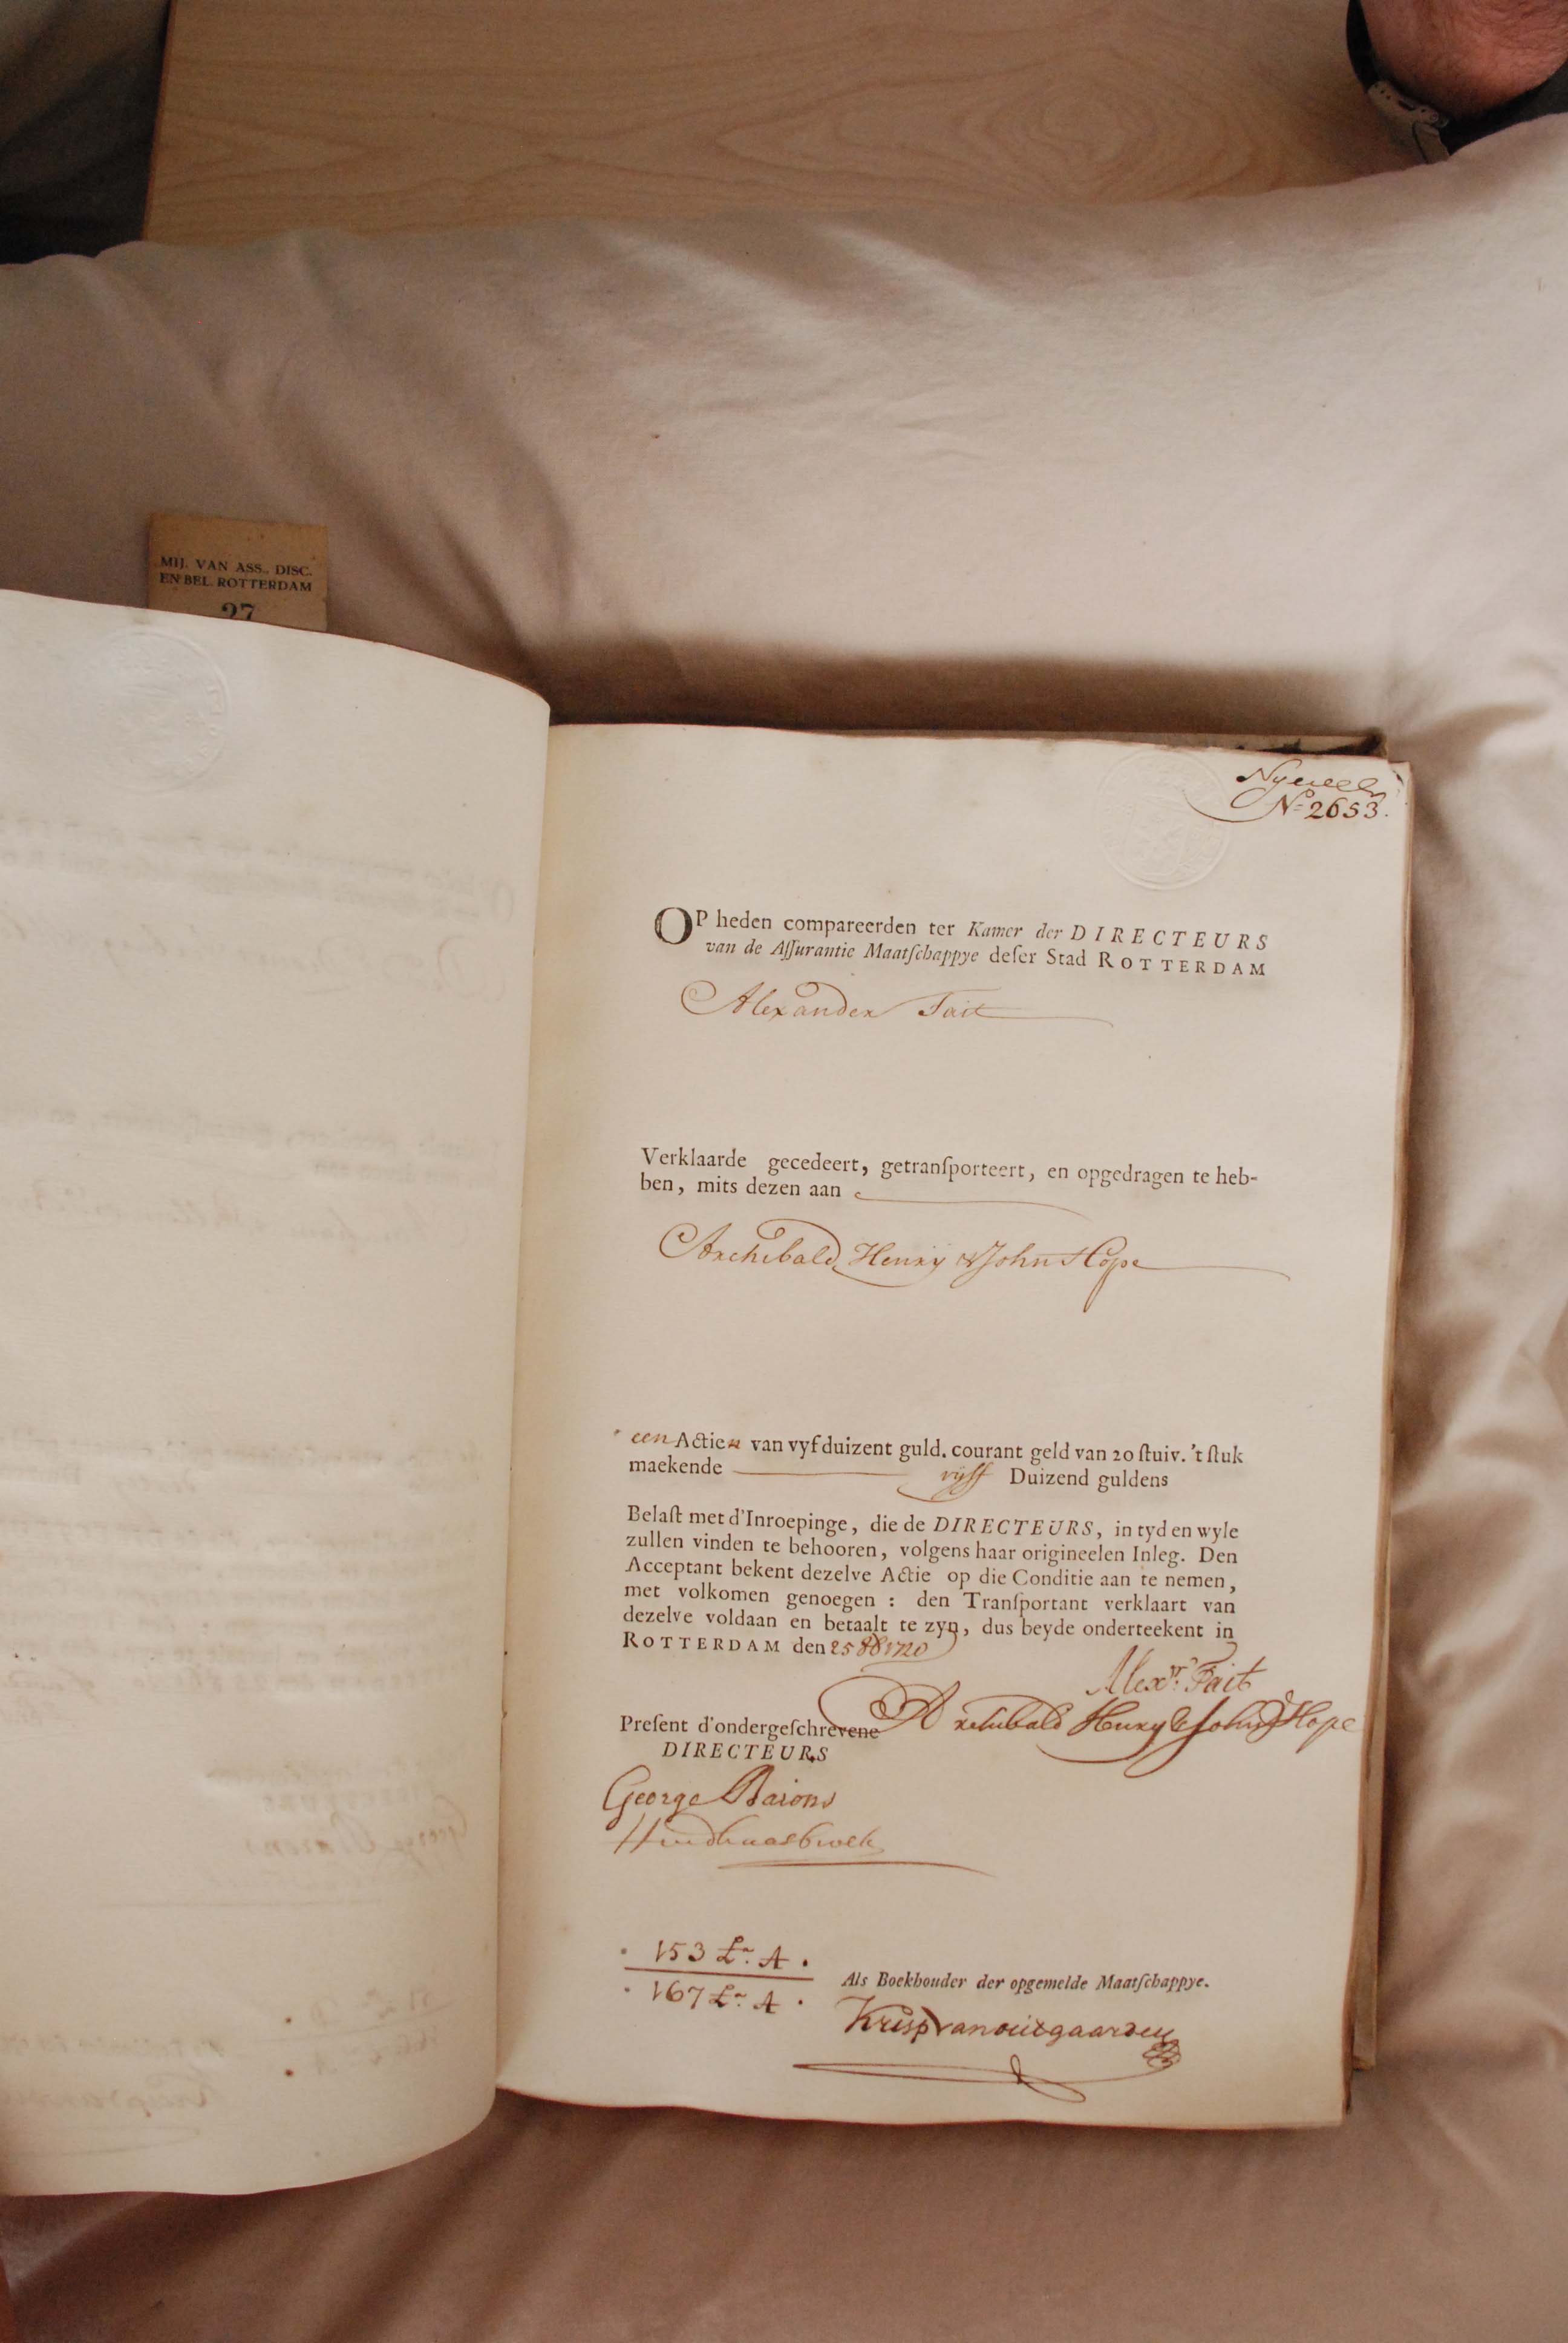 MIJ. VAN ASS., DISC.
EN BEL. ROTTERDAM
27
No 2653.
OP heden compareerden ter Kamer der DIRECTEURS
van de Aſſurantie Maatſchappye deſer Stad ROTTERDAM
Alexander Tait
Verklaarde gecedeert, getranſporteert, en opgedragen te heb-
ben, mits dezen aan
Archibald Henry & John Hope
een Actie van vyf duizent guld. courant geld van 20 ſtuiv. 't ſtuk
maekende vijff Duizend guldens
Belaſt met d'Inroepinge, die de DIRECTEURS, in tyd en wyle
zullen vinden te behooren, volgens haar origineelen Inleg. Den
Acceptant bekent dezelve Actie op die Conditie aan te nemen,
met volkomen genoegen : den Tranſportant verklaart van
dezelve voldaan en betaalt te zyn, dus beyde onderteekent in
ROTTERDAM den 25 1720
Alexr. Tait
Archibald Henry & John Hope
Preſent d'ondergeſchrevene
DIRECTEURS
George Barons
153 Lra. A.
167 Lra. A.
Als Boekhouder der opgemelde Maatſchappye.